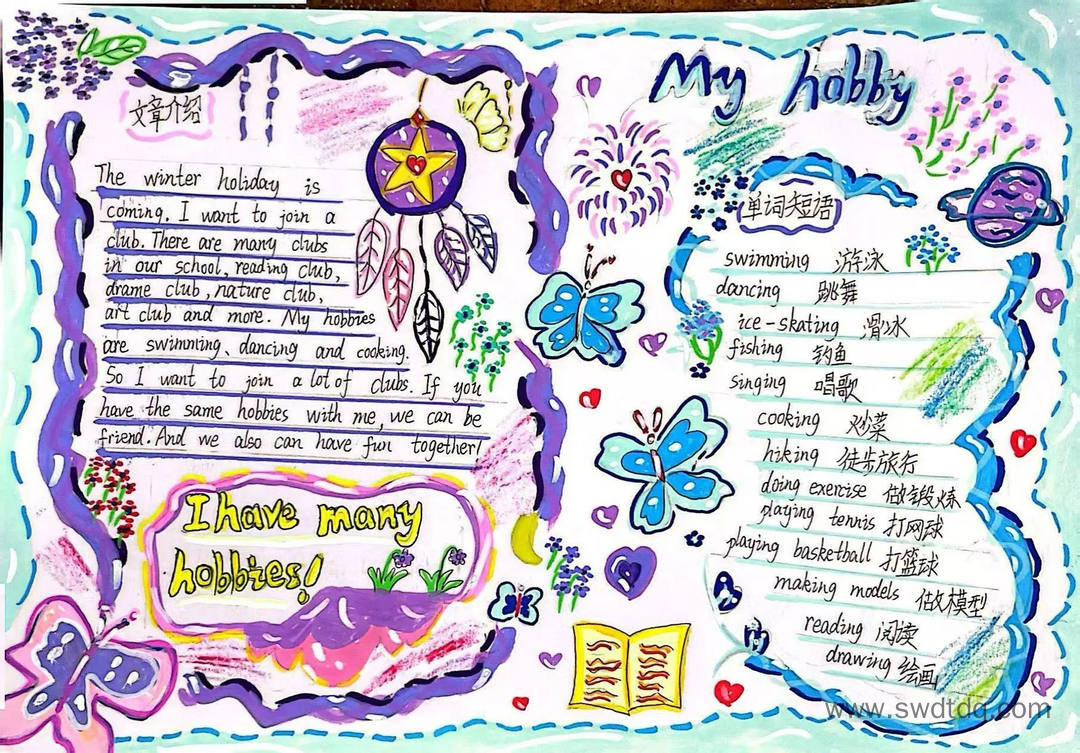 My hobby
文章介绍
The winter holiday is
coming. I want to join a
club. There are many clubs
in our school, reading club,
drame club, nature club,
art club and more. My hobbies
are swimming, dancing and cooking.
So I want to join a lot of clubs. If you
have the same hobbies with me, we can be
friend. And we also can have fun together!
I have many
hobbies!
单词短语
swimming 游泳
dancing 跳舞
ice-skating 滑冰
fishing 钓鱼
singing 唱歌
cooking 炒菜
hiking 徒步旅行
doing exercise 做锻炼
playing tennis 打网球
playing basketball 打篮球
making models 做模型
reading 阅读
drawing 绘画
www.swdtdq.com